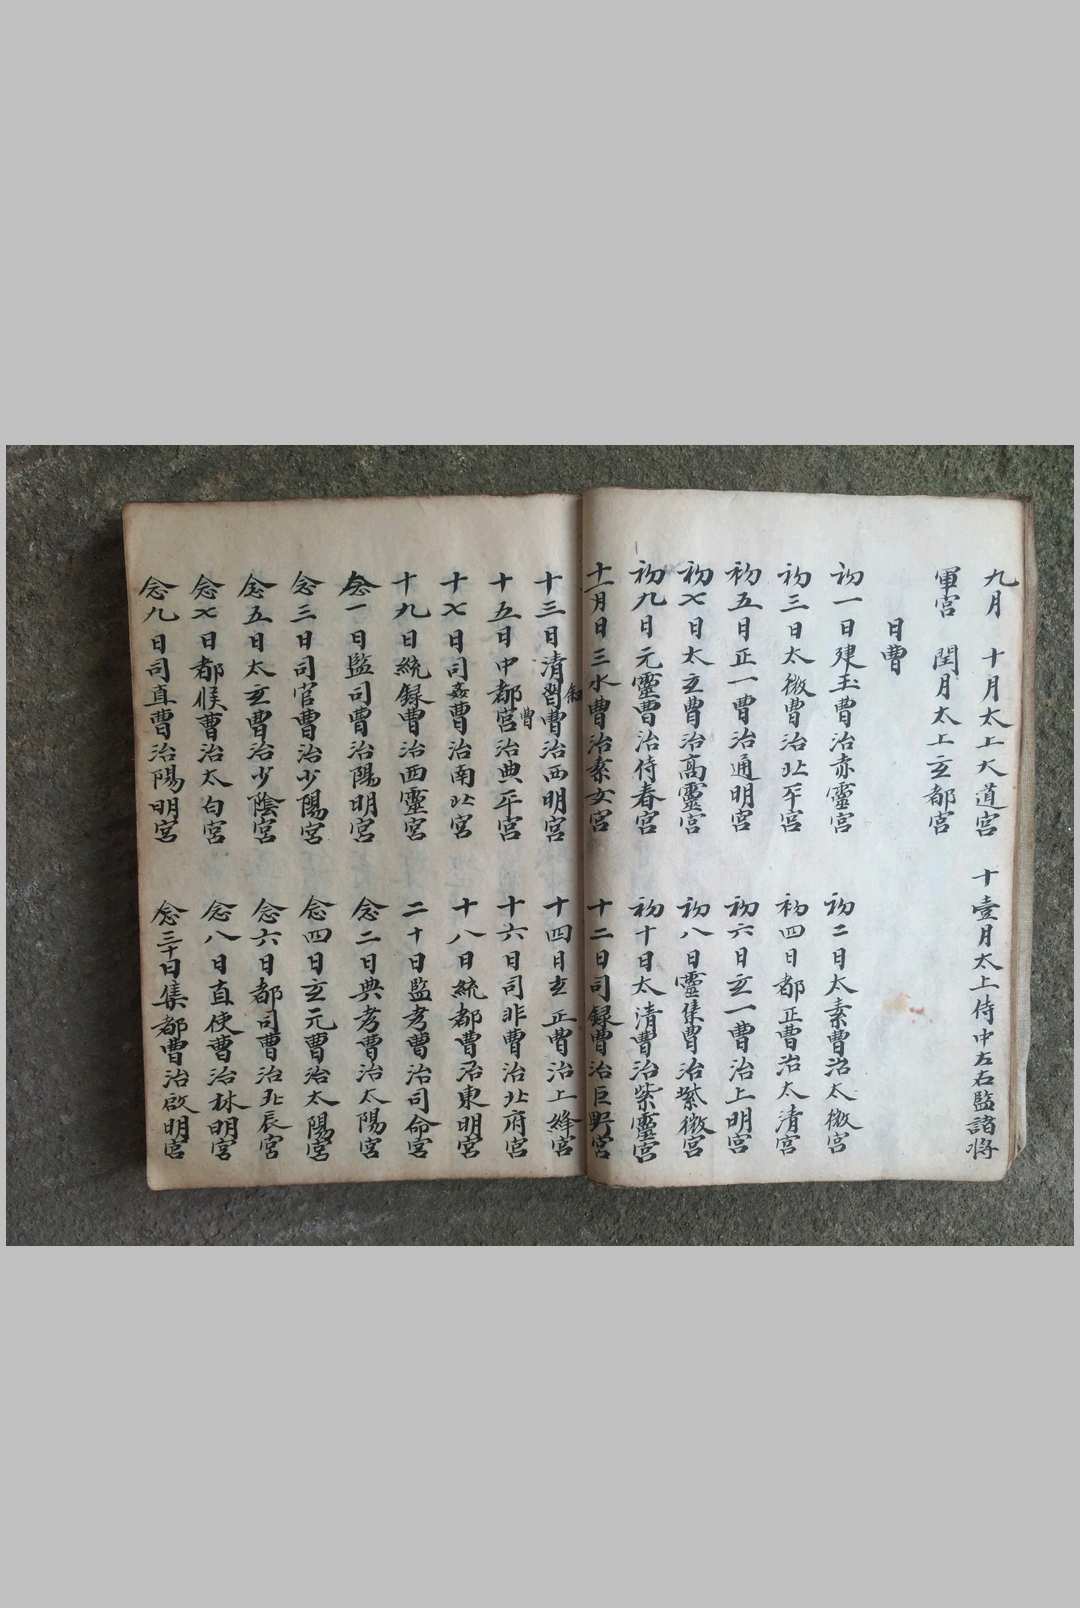 九月 十月太上大道宮 十壹月太上侍中左右監諸將
軍宮 閏月太上玄都宮
日曹
初一日建玉曹治赤靈宮 初二日太素曹治太微宮
初三日太微曹治北平宮 初四日都正曹治太清宮
初五日正一曹治通明宮 初六日玄一曹治上明宮
初七日太玄曹治高靈宮 初八日靈集曹治紫微宮
初九日元靈曹治侍春宮 初十日太清曹治紫靈宮
十一日三水曹治素女宮 十二日司録曹治巨野宮
十三日清習曹治西明宮 十四日玄正曹治上絳宮
十五日中都宮曹治典平宮 十六日司非曹治北府宮
十七日司姦曹治南北宮 十八日統都曹治東明宮
十九日統録曹治西靈宮 二十日監考曹治司命宮
念一日監司曹治陽明宮 念二日典考曹治太陽宮
念三日司官曹治少陽宮 念四日玄元曹治太陽宮
念五日太玄曹治少陰宮 念六日都司曹治北辰宮
念七日都候曹治太白宮 念八日直使曹治林明宮
念九日司直曹治陽明宮 念三十日集都曹治啟明宮